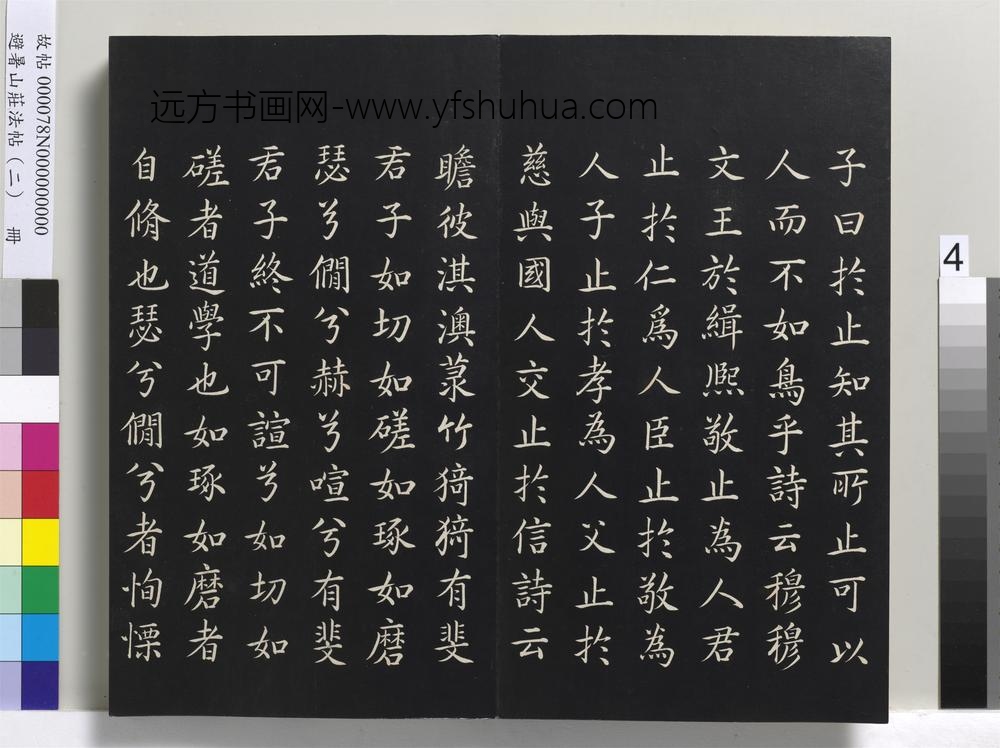 子曰於止知其所止可以
人而不如鳥乎詩云穆穆
文王於緝熙敬止為人君
止於仁爲人臣止於敬為
人子止於孝為人父止於
慈與國人交止於信詩云
瞻彼淇澳菉竹猗猗有斐
君子如切如磋如琢如磨
瑟兮僩兮赫兮喧兮有斐
君子終不可諠兮如切如
磋者道學也如琢如磨者
自脩也瑟兮僩兮者恂慄
远方书画网-www.yfshuhua.com
故帖 000078N000000000
避暑山莊法帖(二) 冊
4